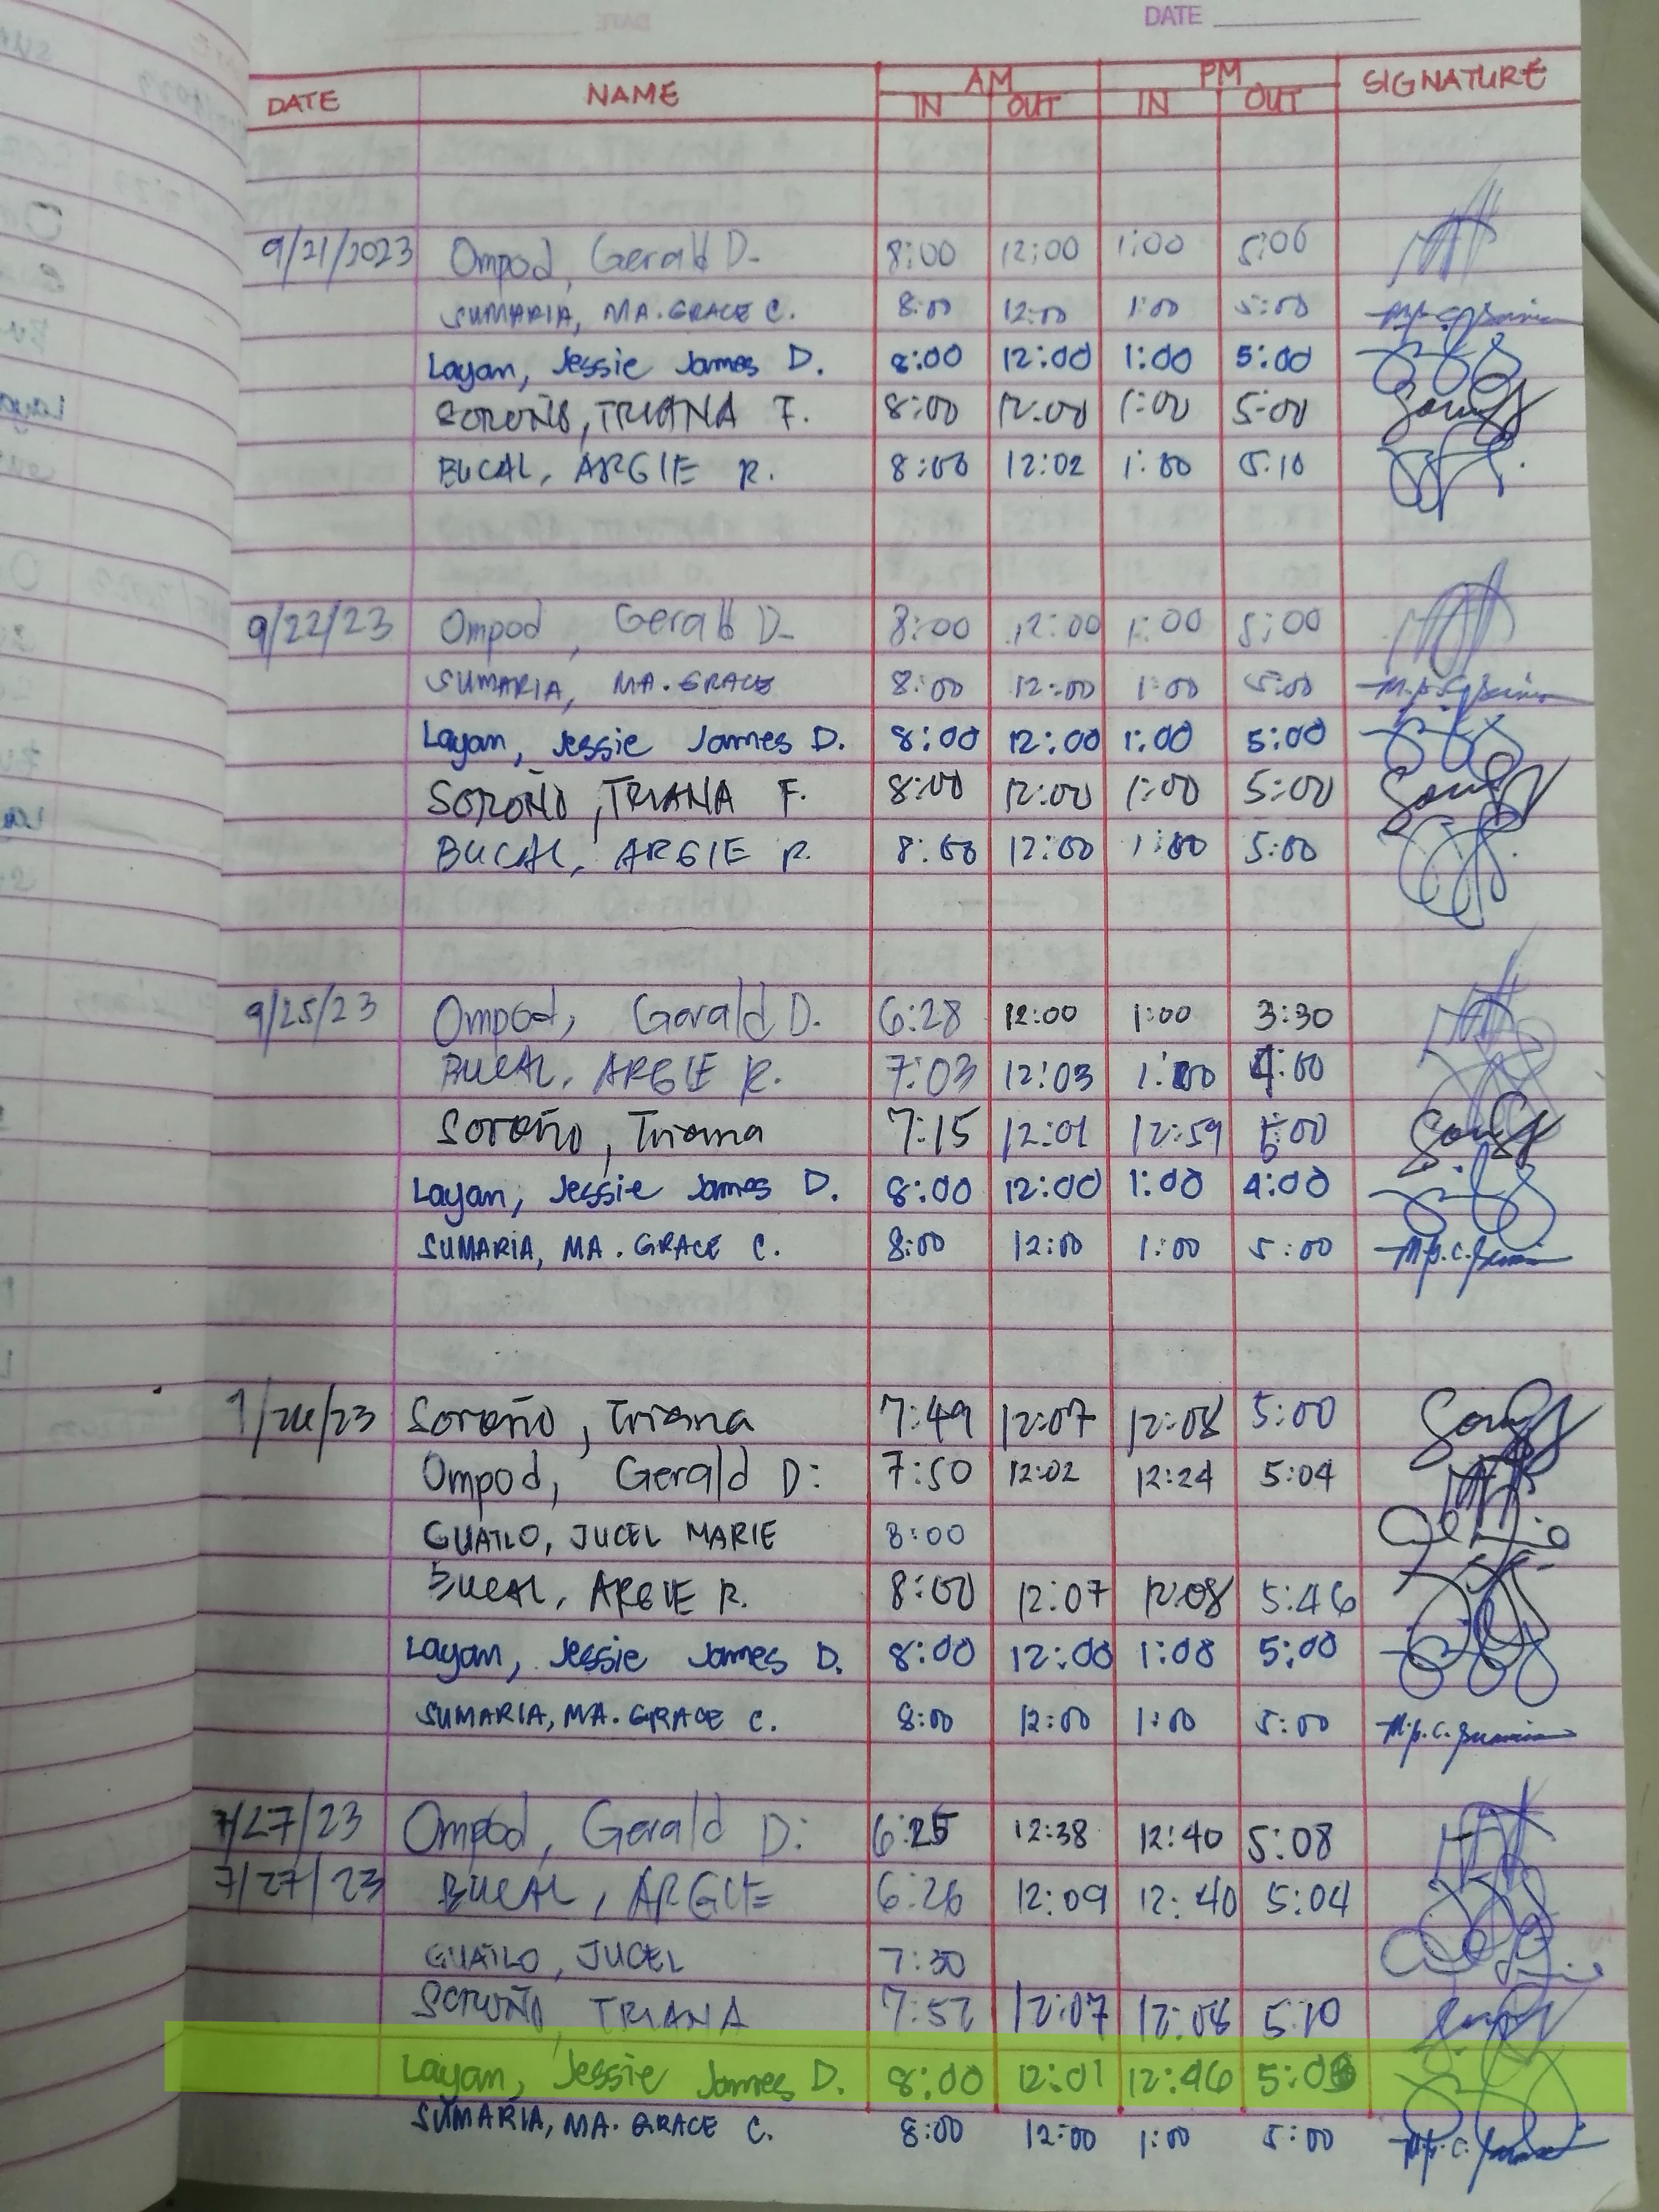 DATE
DATE NAME AM PM SIGNATURE
IN OUT IN OUT
9/21/2023 Ompod, Gerald D. 8:00 12:00 1:00 5:06
SUMARIA, MA. GRACE C. 8:00 12:00 1:00 5:00
Layan, Jessie James D. 8:00 12:00 1:00 5:00
SOROÑO, TRIANA F. 8:00 12:00 1:00 5:00
BUCAL, ARGIE R. 8:00 12:02 1:00 5:10
9/22/23 Ompod, Gerald D. 8:00 12:00 1:00 5:00
SUMARIA, MA. GRACE 8:00 12:00 1:00 5:00
Layan, Jessie James D. 8:00 12:00 1:00 5:00
SOROÑO, TRIANA F. 8:00 12:00 1:00 5:00
BUCAL, ARGIE R. 8:00 12:00 1:00 5:00
9/25/23 Ompod, Gerald D. 6:28 12:00 1:00 3:30
BUCAL, ARGIE R. 7:03 12:03 1:00 4:00
Soroño, Triana 7:15 12:01 12:59 5:00
Layan, Jessie James D. 8:00 12:00 1:00 4:00
SUMARIA, MA. GRACE C. 8:00 12:00 1:00 5:00
Soroño, Triana 7:49 12:07 12:08 5:00
Ompod, Gerald D. 7:50 12:02 12:24 5:04
GUATLO, JUCEL MARIE 8:00
BUCAL, ARGIE R. 8:00 12:07 12:08 5:46
Layan, Jessie James D. 8:00 12:00 1:00 5:00
SUMARIA, MA. GRACE C. 8:00 12:00 1:00 5:00
7/27/23 Ompod, Gerald D. 6:25 12:38 12:40 5:08
7/27/23 BUCAL, ARGIE 6:26 12:09 12:40 5:04
GUATLO, JUCEL 7:30
SOROÑO, TRIANA 7:52 12:07 12:08 5:10
Layan, Jessie James D. 8:00 12:01 12:46
SUMARIA, MA. GRACE C. 8:00 12:00 1:00 5:00